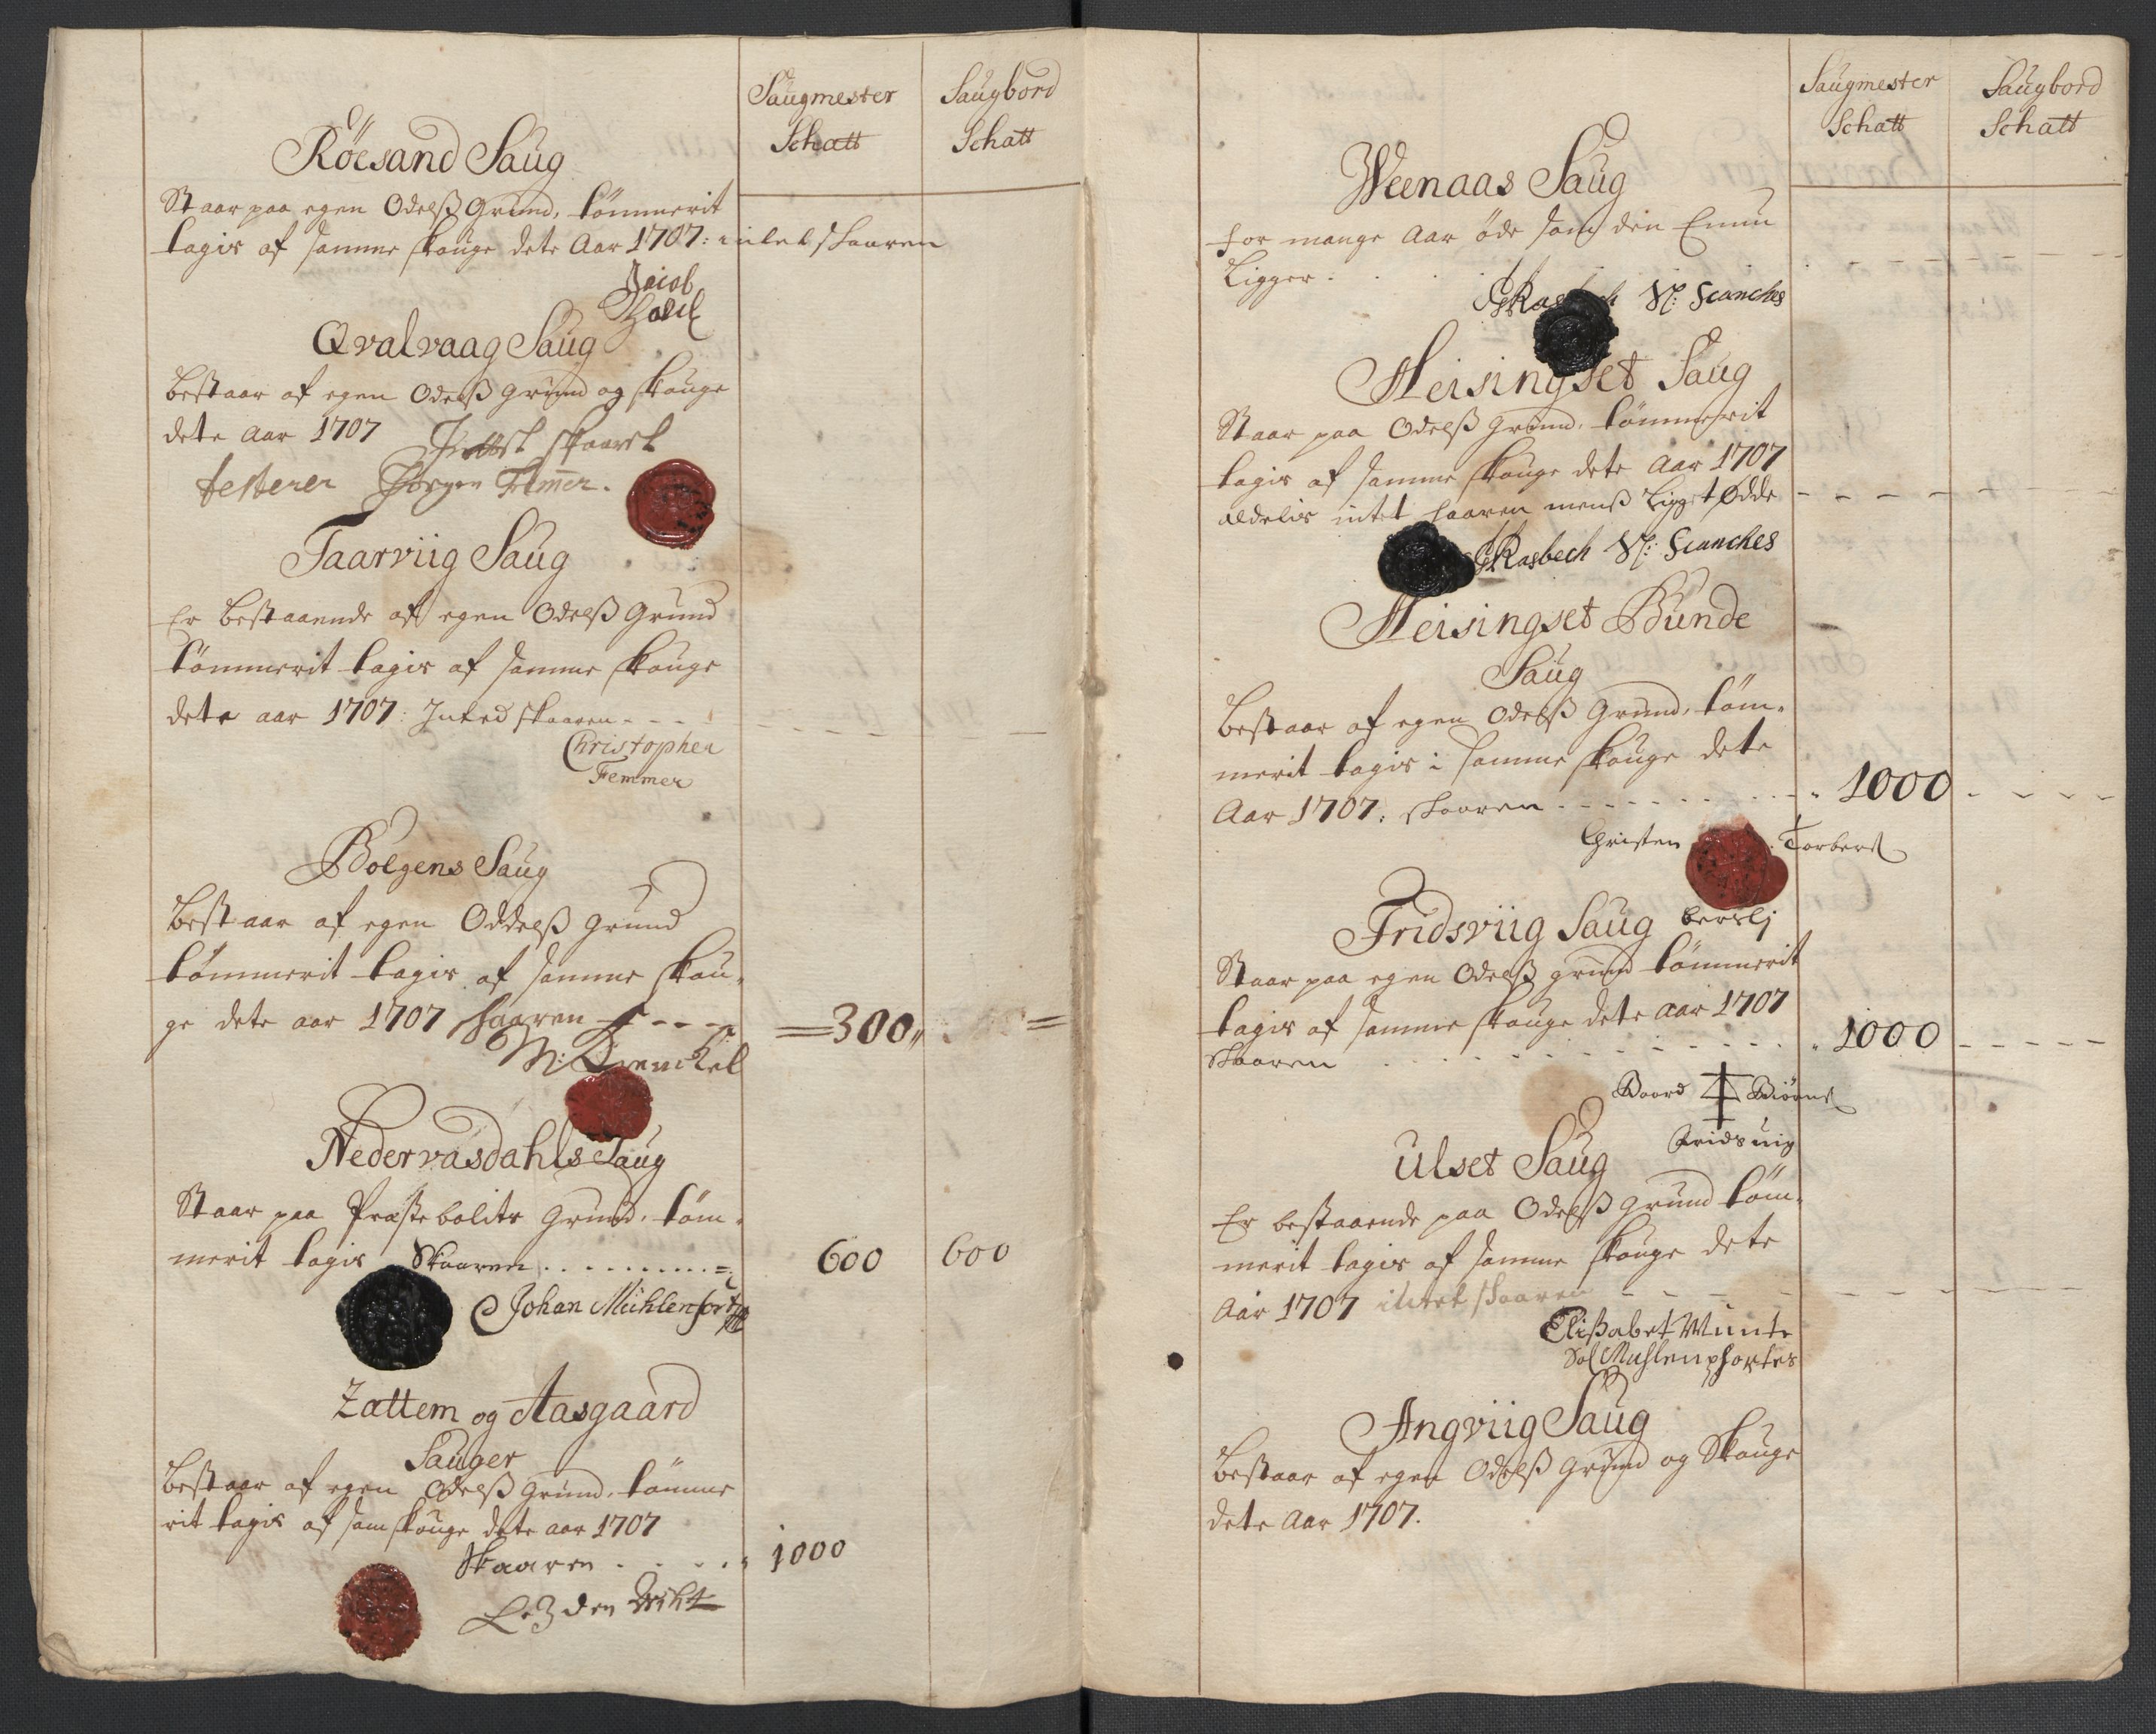 Saugmester Saugbord
Schatt Schatt
Röesand Saug
Staar paa egen Odelß Grund, tömmerit
tagis af samme skouge dete Aar 1707: intet skaaren
Jacob
Qvalvaag Saug
bestaar af egen Odelß grund og skouge
dete Aar 1707 Intet skaaret
testerer Jörgen Femer.
Taarviig Saug
Er bestaaende af egen Odelß Grund
tömmerit tagis af samme skouge
dete aar 1707: Inted skaaren - - -
Christopher
Femmer
Bolgens Saug
bestaar af egen Oddelß grund
tömmerit tagis af samme skou-
ge dete aar 1707 skaaren - - - =300„ =
Nedervasdahls Saug
Staar paa Præstebolits grund, töm-
merit tagis Skaaren . . . . . . . . . . 600 600
Johan Mühlenfort
Zattem og Aasgaard
Sauger
bestaar af egen Odelß grund, tömme
rit tagis af sam skouge dete aar 1707
Skaaren . . . . . 1000
Saugmester Saugbord
Schatt Schatt
Weenaas Saug
for mange Aar öde som den Ennu
Ligger . . .
GRasbech N: Scanches
Heisingset Saug
Staar paa Odelß grund, tömmerit
tagis af samme skouge dete Aar 1707
aldelis intet skaaren menß Ligget Ødde - - - - -
GRasbech N: Scanches
Heisingset Bunde
Saug
bestaar af egen Odelß Grund, töm-
merit tagis i samme skouge dete
Aar 1707: skaaren - - - - - - - - - 1000 - - - -
Christen Torbers
Fridsviig Saug
Staar paa egen Odelß grund tömmerit
tagis af samme skouge dete aar 1707
skaaren . . . . . . . . . . 1000 - - - - -
Baard Biörns
Fridsuig
Ulset Saug
Er bestaaende paa Odelß Grund töm-
merit tagis af samme skouge dete
Aar 1707 intet skaaren - - - - - - -
Elißabet Munte
Sal Muhlenphortes
Angviig Saug
bestaar af egen Odelß grund og Skouge
dete Aar 1707.